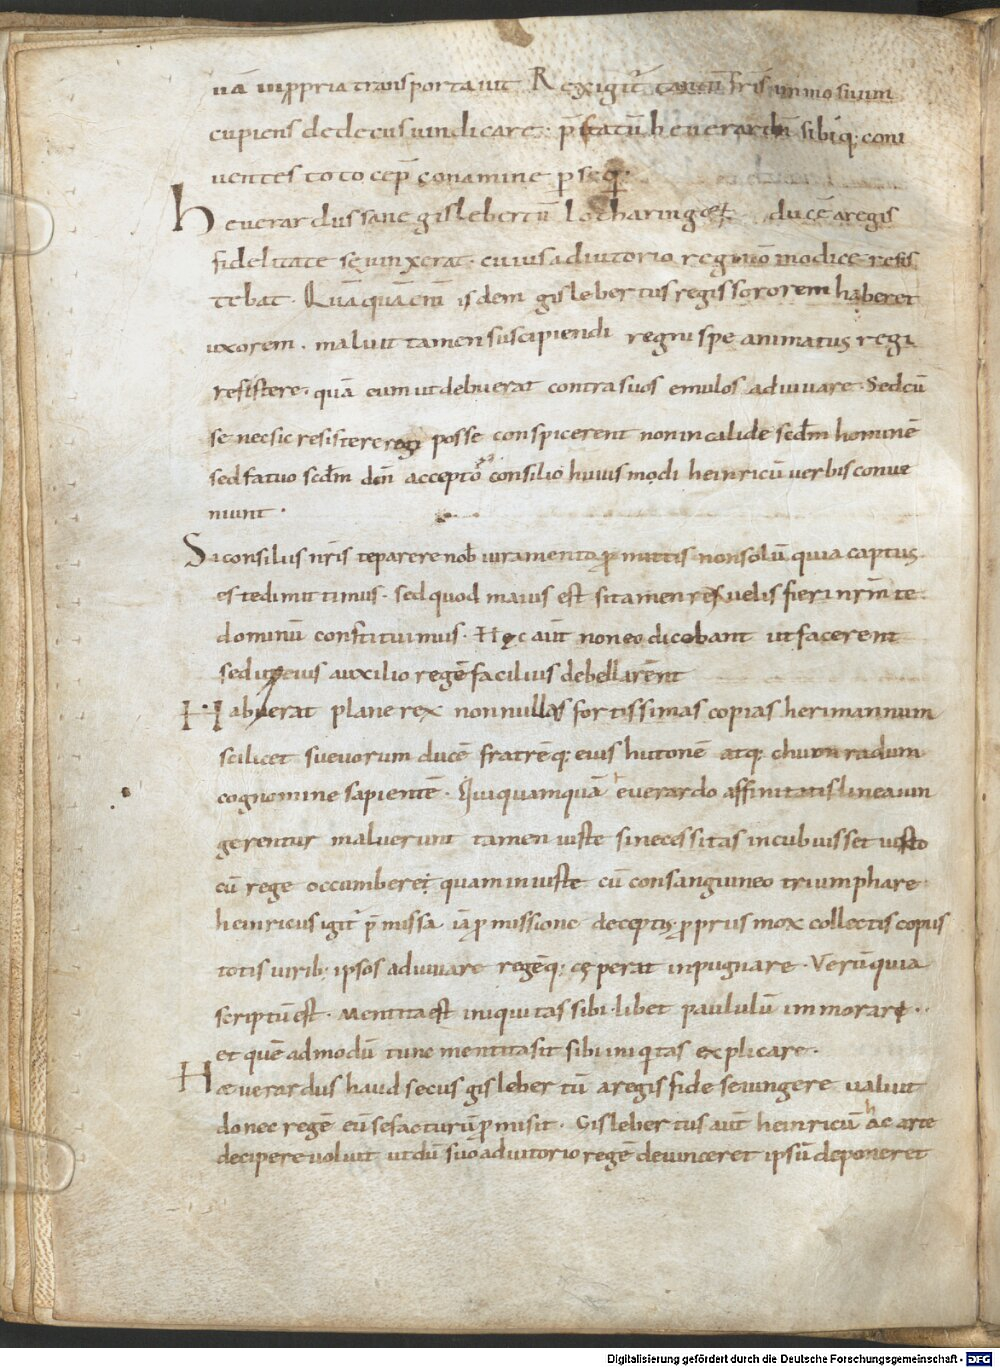 uā inppria transportauit Rex igit͛ tantū fr̄is immo suum
cupiens dedecus uindicare · p̄fatū heuerardū sibiq; coni
uentes toto cep̄ conamine ꝑseq̄.
heuerardus sane gislebertū lotharingoꝝ ducē a regis
fidelitate seiunxerat · cuius adiutorio regi n̄ modice resis
tebat · Quāquā eni̅ isdem gislebertus regis sororem haberet
uxorem · maluit tamen suscipiendi regni spe animatus regi
resistere · quā eum ut debuerat contra suos emulos adiuuare · Sed cū
se nec sic resistere regi posse conspicerent non incalide scd̄m hominē
sed fatuo scd̄m dn̄m accepto consilio huiusmodi heinricū uerbis conue
niunt ·
Si consiliis nr̄is te parere nob̄ iuramento ꝓmittis non solū quia captus
es te dimittimus · sed quod maius est si tamen rex uelis fieri nr̄m te
dominū constituimus · Hęc aūt non eo dicebant ut facerent
sed ut eius auxilio regē facilius debellarent
Habuerat plane rex nonnullas fortissimas copias herimannum
scilicet sueuorum ducē fratrēq; eius hutonē atq; chuonradum
cognomine sapientē · Qui quamquā euerardo affinitatis lineaiun
gerentur maluerunt tamen iuste si necessitas incubuisset iusto
cū rege occumberet quam iniuste cū consanguineo triumphare
heinricus igit͛ p̄missa iā ꝓmissione deceptus ꝓpriis mox collectis copiis
totis uirib; ipsos adiuuare regēq; cęperat inpugnare · Verū quia
scriptū est · Mentita est iniquitas sibi · libet paululū immorare · ·
et quē admodū tunc mentita sit sibi iniq̇tas explicare ·
Haeuerardus haud secus gislebertū a regis fide seiungere ualuit
donec regē eū se facturū ꝓmisit · Gislebertus aūt heinricū hac arte
decipere uoluit ut dū suo adiutorio regē deuinceret ipsū deponeret
Digitalisierung gefördert durch die Deutsche Forschungsgemeinschaft - DFG